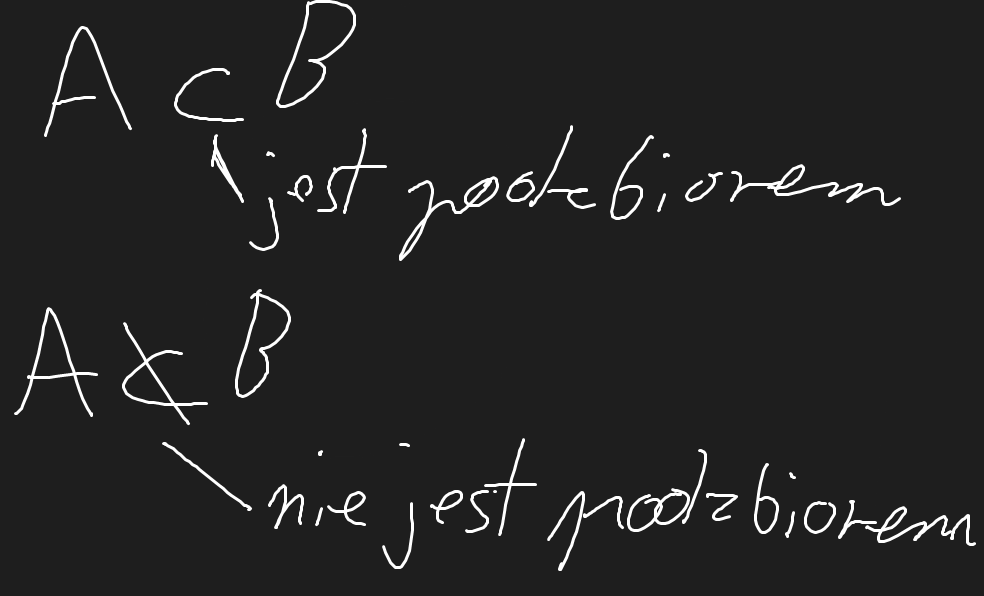 A ⊂ B
jest podzbiorem
A ⊄ B
nie jest podzbiorem